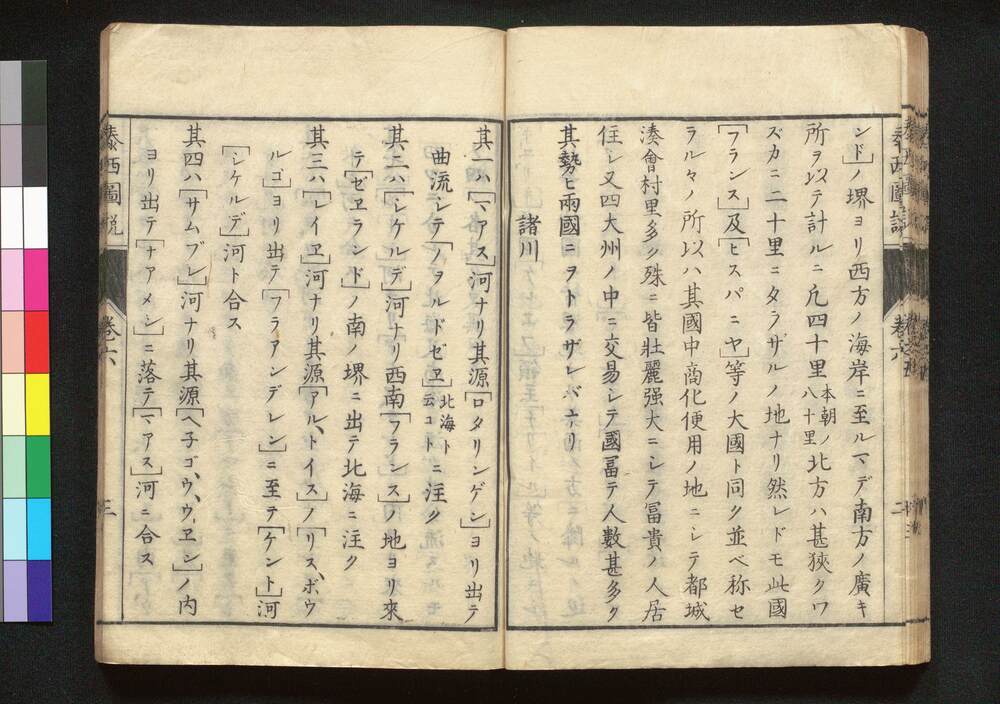 泰西圖説
卷六
二
ンド］ノ堺ヨリ西方ノ海岸ニ至ルマデ南方ノ廣キ
所ヲ以テ計ルニ凡四十里本朝ノ八十里北方ハ甚狹クワ
ズカニ二十里ニタラザルノ地ナリ然レドモ此國
［フランス］及［ヒスパニヤ］等ノ大國ト同ク並ベ称セ
ラルヽノ所以ハ其國中商化便用ノ地ニシテ都城
湊會村里多ク殊ニ皆壮麗强大ニシテ冨貴ノ人居
住シ又四大州ノ中ニ交易シテ國冨テ人數甚多ク
其勢ヒ兩國ニヲトラザレバナリ
諸川
其一ハ［マアス］河ナリ其源［ロタリンゲン］ヨリ出テ
曲流シテ［ノヲルドゼヱ］北海ト云コトニ注ク
其二ハ［シケルデ］河ナリ西南［フランス］ノ地ヨリ來
テ［ゼヱランド］ノ南ノ堺ニ出テ北海ニ注ク
其三ハ［レイヱ］河ナリ其源［アル、トイス］ノ［リス、ボウ
ルゴ］ヨリ出テ［フラアンデレン］ニ至テ［ケント］河
［シケルデ］河ト合ス
其四ハ［サムブレ］河ナリ其源［ヘ子ゴ、ウ、ウヱン］ノ内
ヨリ出テ［ナアメン］ニ落テ［マアス］河ニ合ス
泰西圖説
卷六
三